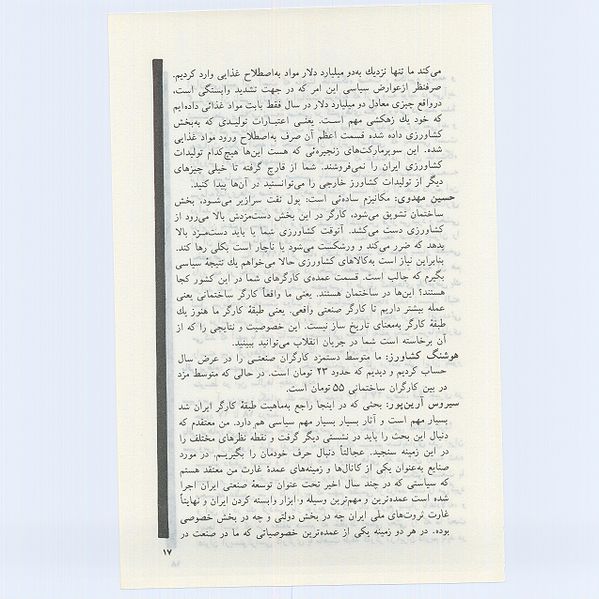 می‌کند ما تنها نزدیك به‌دو میلیارد دلار مواد به‌اصطلاح غذایی وارد کردیم.
صرفنظر ازعوارض سیاسی این امر که در جهت تشدید وابستگی است،
درواقع چیزی معادل دو میلیارد دلار در سال فقط بابت مواد غذائی داده‌ایم
که خود یك زهکشی مهم است. یعنی اعتبارات تولیدی که به‌بخش
کشاورزی داده شده قسمت اعظم آن صرف به‌اصطلاح ورود مواد غذایی
شده. این سوپرمارکت‌های زنجیره‌ئی که هست این‌ها هیچ‌کدام تولیدات
کشاورزی ایران را نمی‌فروشند. شما از قارچ گرفته تا خیلی چیزهای
دیگر از تولیدات کشاورز خارجی را می‌توانستید در آن‌ها پیدا کنید.
حسین مهدوی: مکانیزم ساده‌ئی است: پول نفت سرازیر می‌شود، بخش
ساختمان تشویق می‌شود، کارگر در این بخش دست‌مزدش بالا می‌رود از
کشاورزی دست می‌کشد. آنوقت کشاورزی شما یا باید دست‌مزد بالا
بدهد که ضرر می‌کند و ورشکست می‌شود یا ناچار است بکلی رها کند.
بنابراین نیاز است به‌کالاهای کشاورزی حالا می‌خواهم یك نتیجهٔ سیاسی
بگیرم که جالب است. قسمت عمده‌ی کارگرهای شما در این کشور کجا
هستند؟ این‌ها در ساختمان هستند. یعنی ما واقعاً کارگر ساختمانی یعنی
عمله بیشتر داریم تا کارگر صنعتی واقعی. یعنی طبقهٔ کارگر ما هنوز یك
طبقهٔ کارگر به‌معنای تاریخ ساز نیست. این خصوصیت و نتایجی را که از
آن برخاسته است شما در جریان انقلاب می‌توانید ببینید.
هوشنگ کشاورز: ما متوسط دستمزد کارگران صنعتی را در عرض سال
حساب کردیم و دیدیم که حدود ۲۳ تومان است. در حالی که متوسط مزد
در بین کارگران ساختمانی ۵۵ تومان است.
سیروس آرین‌پور: بحثی که در اینجا راجع به‌ماهیت طبقهٔ کارگر ایران شد
بسیار مهم است و آثار بسیار بسیار مهم سیاسی هم دارد. من معتقدم که
دنبال این بحث را باید در نشستی دیگر گرفت و نقطه نظرهای مختلف را
در این زمینه سنجید. عجالتاً دنبال حرف خودمان را بگیریم. در مورد
صنایع به‌عنوان یکی از کانال‌ها و زمینه‌های عمدهٔ غارت من معتقد هستم
که سیاستی که در چند سال اخیر تحت عنوان توسعهٔ صنعتی ایران اجرا
شده است عمده‌ترین و مهم‌ترین وسیله و ابزار وابسته کردن ایران و نهایتاً
غارت ثروت‌های ملی ایران چه در بخش دولتی و چه در بخش خصوصی
بوده. در هر دو زمینه یکی از عمده‌ترین خصوصیاتی که ما در صنعت در
۱۷